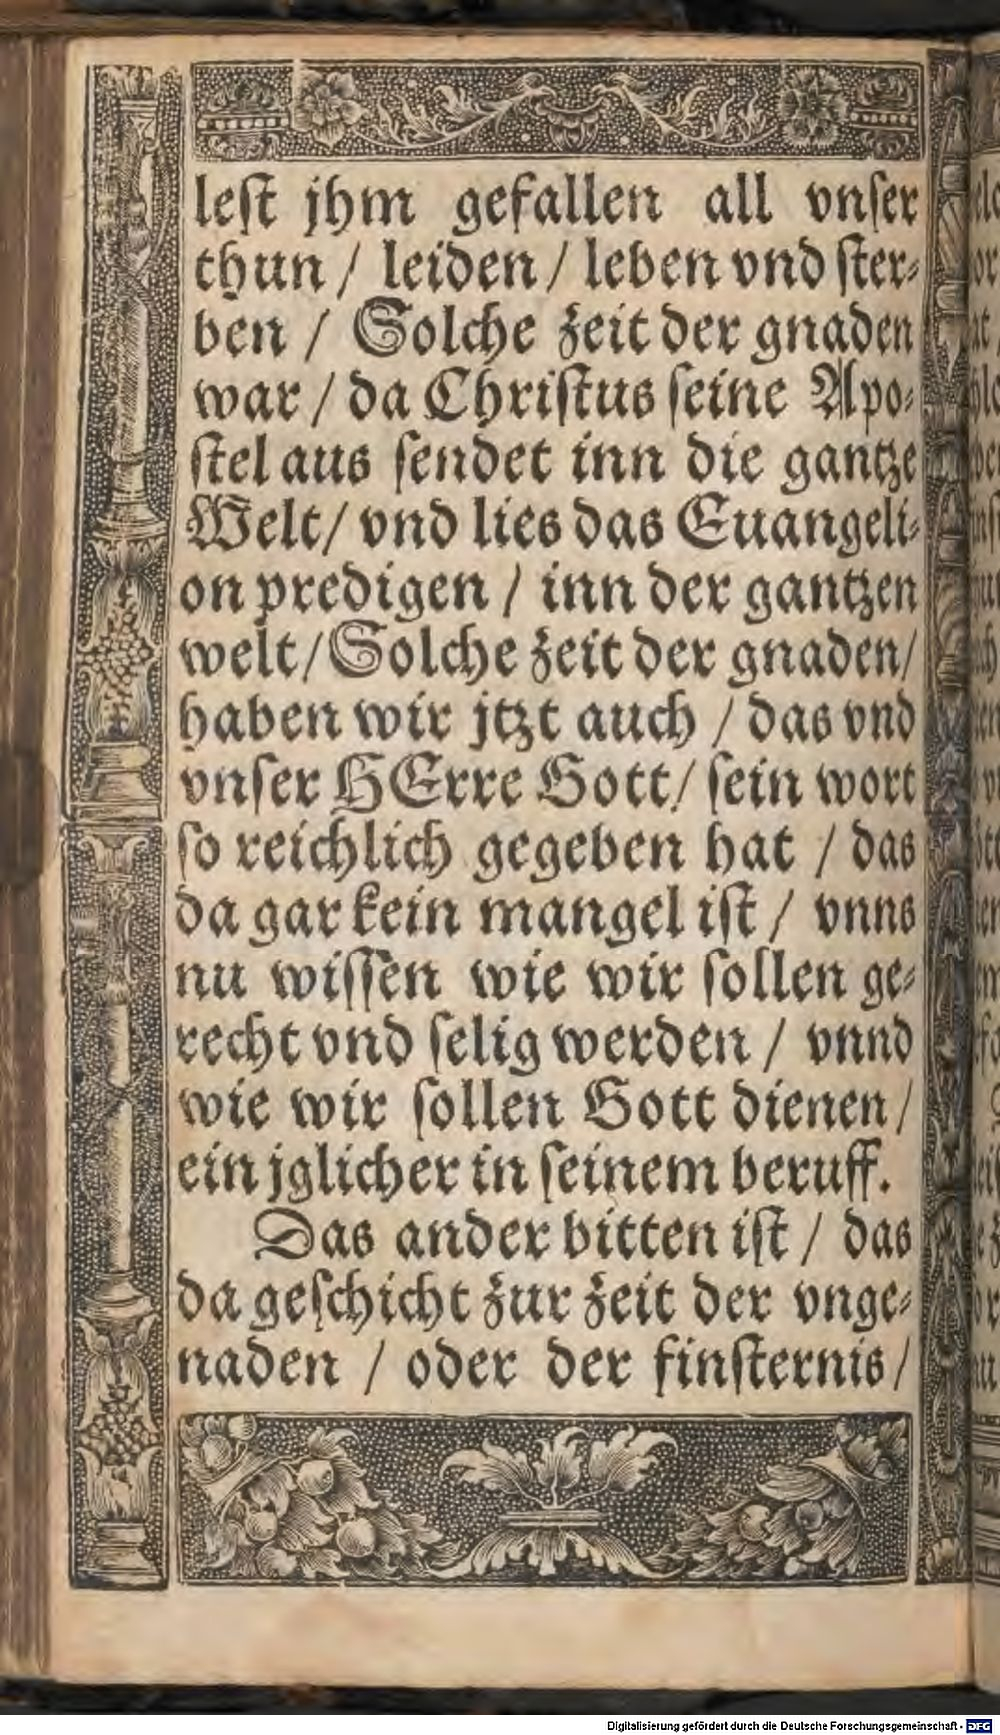 leſt jhm gefallen all vnſer
thun / leiden / leben vnd ſter⸗
ben / Solche zeit der gnaden
war / da Chriſtus ſeine Apo⸗
ſtel aus ſendet inn die gantze
Welt / vnd lies das Euangeli⸗
on predigen / inn der gantzen
welt / Solche zeit der gnaden /
haben wir jtzt auch / das vnd
vnſer HErre Gott / ſein wort
ſo reichlich gegeben hat / das
da gar kein mangel iſt / vnns
nu wiſſen wie wir ſollen ge⸗
recht vnd ſelig werden / vnnd
wie wir ſollen Gott dienen /
ein jglicher in ſeinem beruff.
Das ander bitten iſt / das
da geſchicht zur zeit der vnge⸗
naden / oder der finſternis /
Digitalisierung gefördert durch die Deutsche Forschungsgemeinschaft - DFG